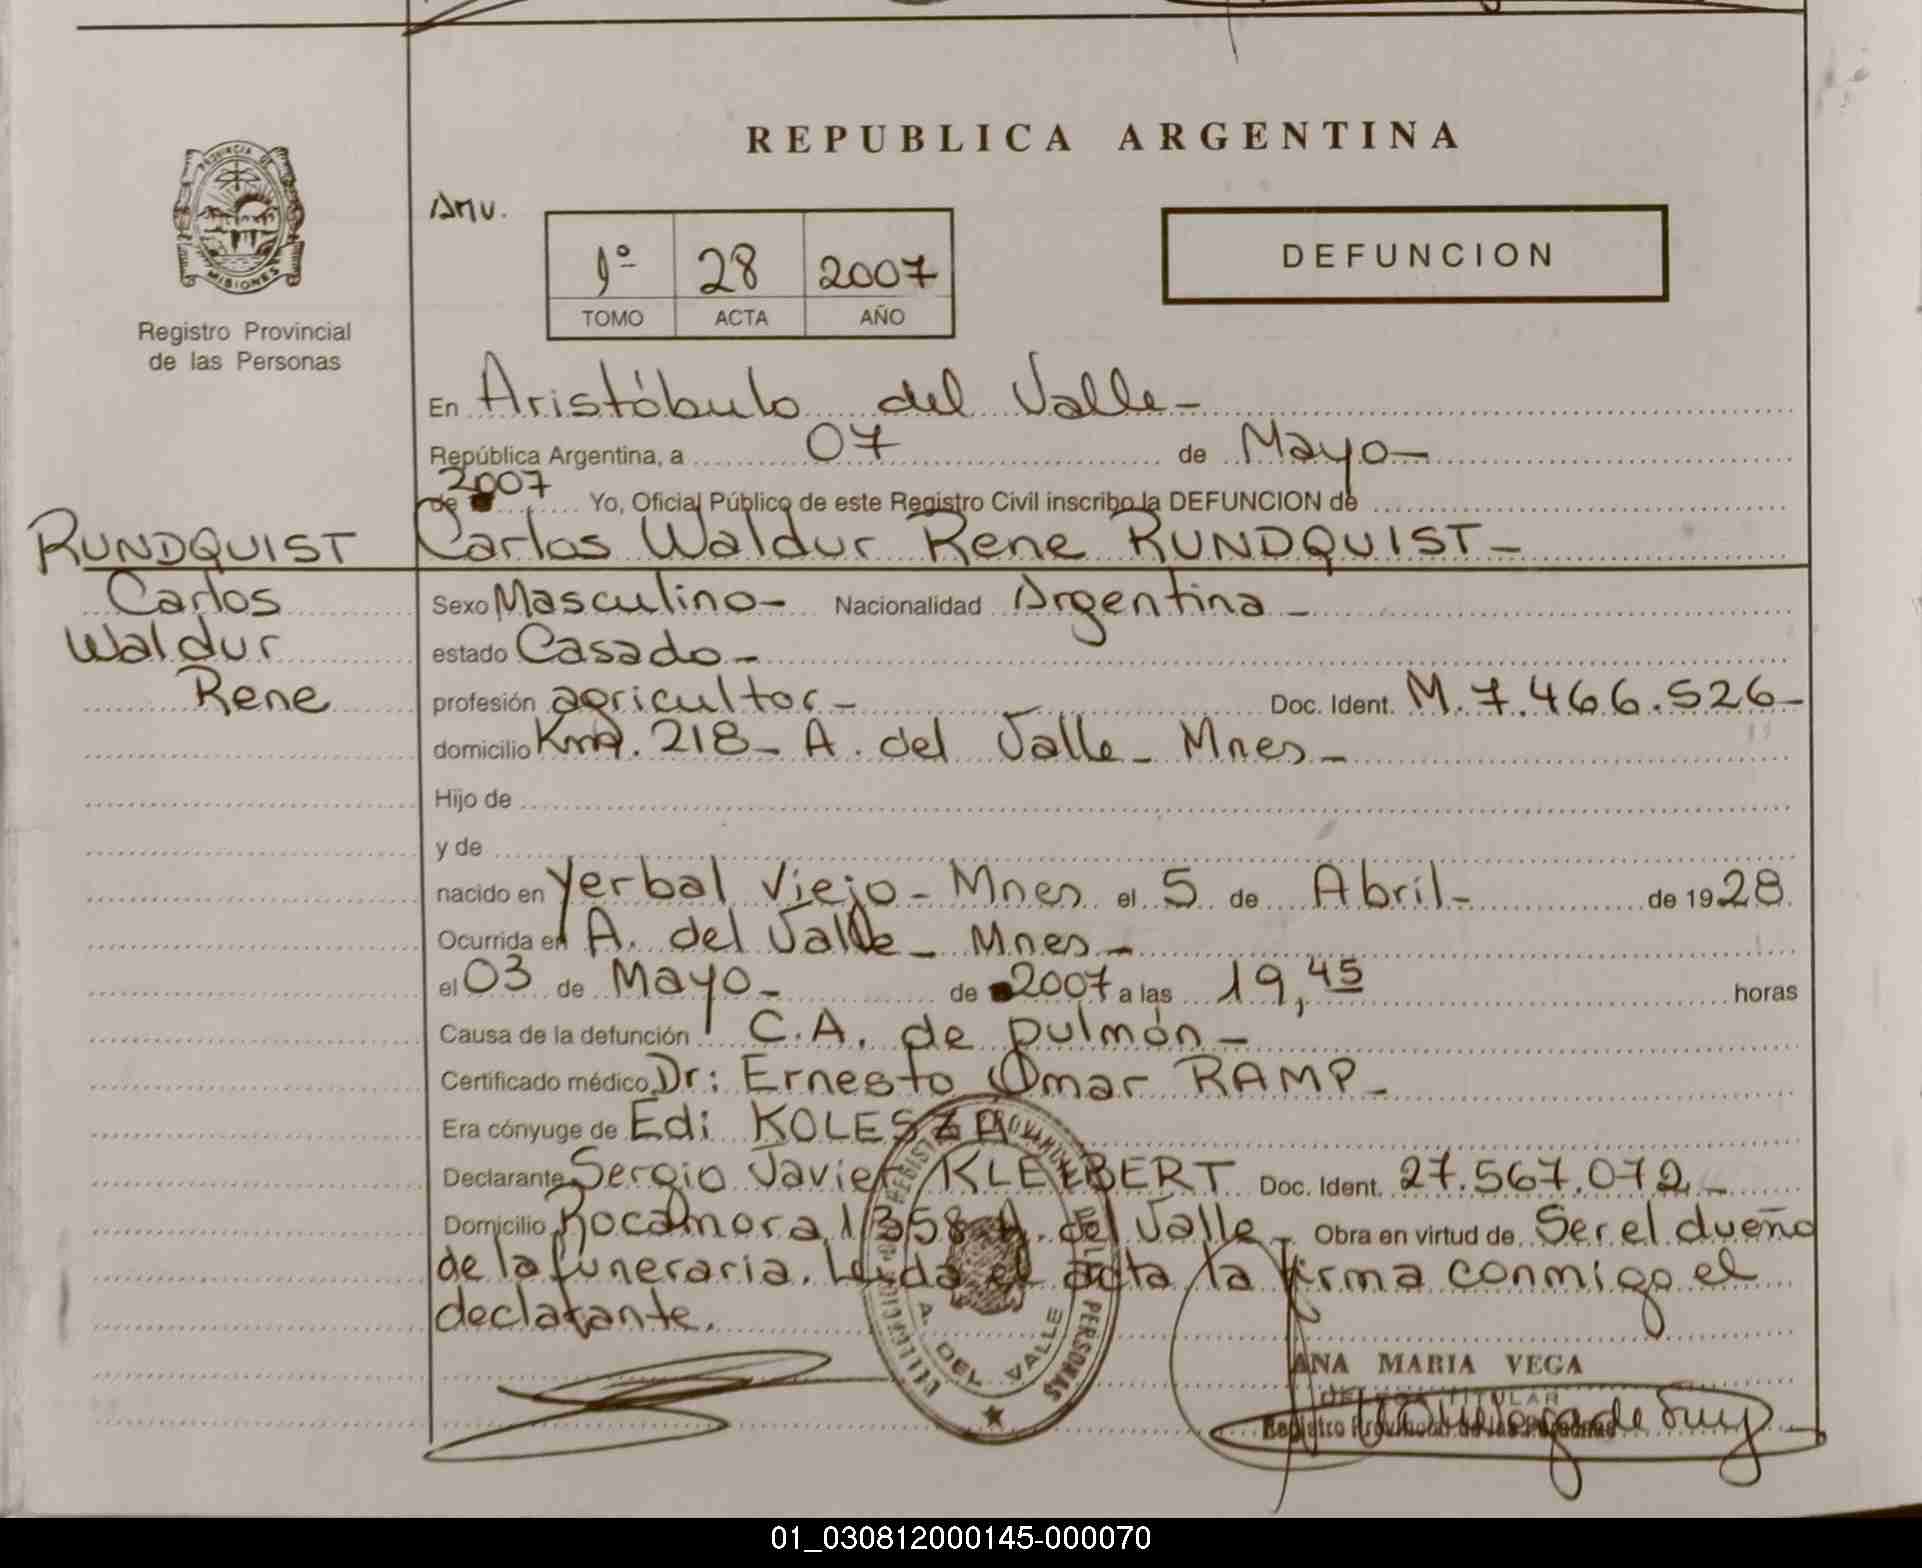 REPUBLICA ARGENTINA
PROVINCIA DE
MISIONES
Registro Provincial
de las Personas
Amv.
1º 28 2007
TOMO ACTA AÑO
DEFUNCION
En Aristóbulo del Valle-
República Argentina, a 07 de Mayo-
de 2007 Yo, Oficial Público de este Registro Civil inscribo la DEFUNCION de
Carlos Waldur Rene RUNDQUIST-
RUNDQUIST
Carlos
Waldur
Rene
Sexo Masculino- Nacionalidad Argentina-
estado Casado-
profesión agricultor- Doc. Ident. M.7.466.526-
domicilio Km. 218- A. del Valle- Mnes-
Hijo de
y de
nacido en Yerbal Viejo- Mnes el 5 de Abril- de 1928
Ocurrida en A. del Valle- Mnes-
el 03 de Mayo- de 2007 a las 19,45 horas
Causa de la defunción C.A. de pulmón-
Certificado médico Dr: Ernesto Omar RAMP-
Era cónyuge de Edi KOLESZA
Declarante Sergio Javier KLEIBERT Doc. Ident. 27.567.072-
Domicilio Rocamora 1358 A. del Valle- Obra en virtud de Ser el dueño
de la funeraria. Leída el acta la firma conmigo el
declarante.
REGISTRO PROVINCIAL DE LAS PERSONAS
A. DEL VALLE
ANA MARIA VEGA
TITULAR
Registro Provincial de las Personas
01_030812000145-000070